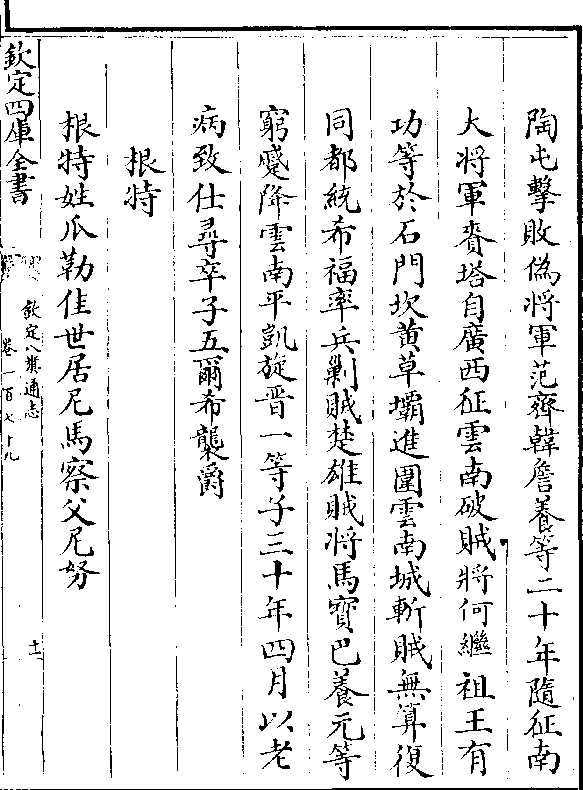 陶屯擊敗偽將軍范齊韓詹養等二十年隨征南
大將軍賚塔自廣西征雲南破賊將何繼祖王有
功等於石門坎黄草壩進圍雲南城斬賊無算復
同都統希福率兵剿賊楚雄賊将馬寶巴養元等
窮蹙降雲南平凱旋晋一等子三十年四月以老
病致仕尋卒子五爾希襲爵
根特
根特姓瓜勒佳世居尼馬察父尼努
欽定四庫全書
欽定八旗通志
卷一百七十九
十一